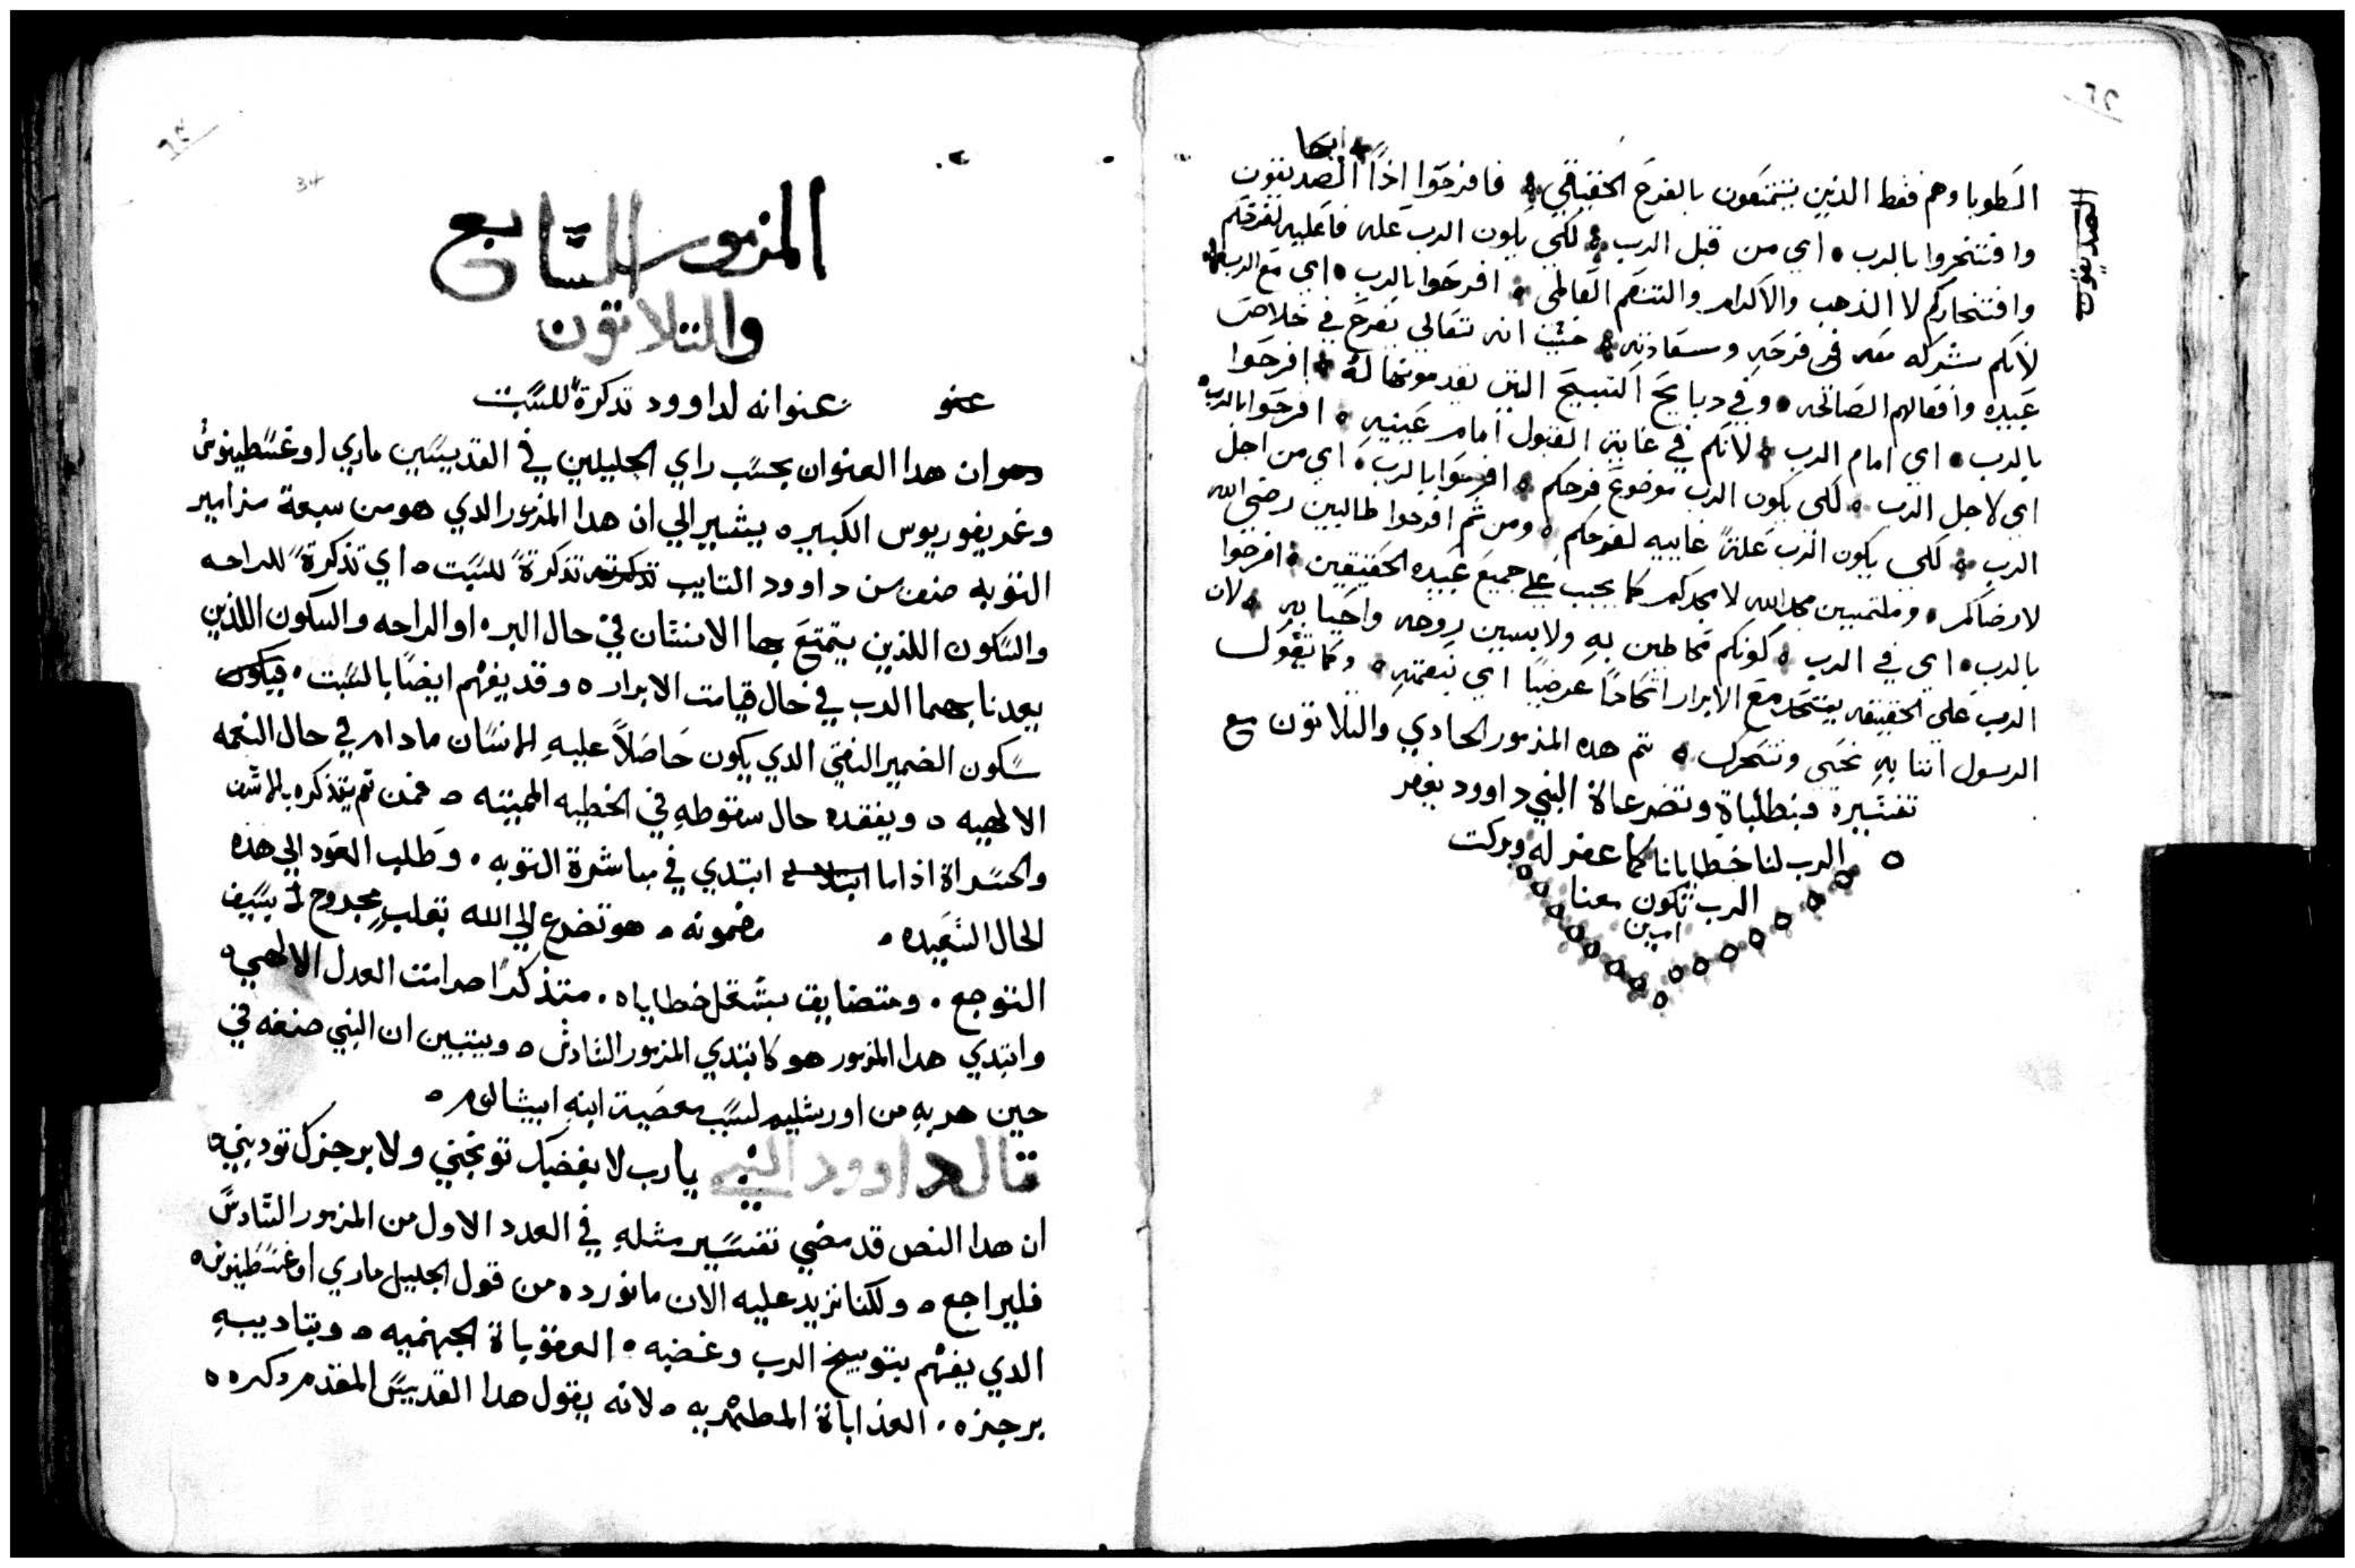 ٦٢
ايها
الطوبا وهم فقط الذين يتمتعون بالفرح الحقيقي فافرحوا اذاً الصديقون
الصديقون
وافتخروا بالرب اي من قبل الرب لكي يكون الرب عله فاعليه لفرحكم
وافتخاركم لا الذهب والاكرام والتنعم العالمي افرحوا بالرب اي مع الرب
لانكم شركه معه في فرحه وسعادته حيث انه تعالي يفرح في خلاص
عبيده وافعالهم الصالحه وفي دبايح التسبيح التي يقدمونها له افرحوا
بالرب اي امام الرب لانكم في غاية القبول امام عينيه افرحوا بالرب
اي لاجل الرب لكي يكون الرب موضوع فرحكم افرحوا بالرب اي من اجل
الرب لكي يكون الرب علةً غاييه لفرحكم ومن ثم افرحوا طالبين رضي الله
لا رضاكم وملتمسين مجد الله لا مجدكم كما يجب علي جميع عبيده الحقيقين افرحوا
بالرب اي في الرب كونكم محاطين به ولابسين روحه واحيا به لان
الرب علي الحقيقه يتحد مع الابرار اتحاداً عرضياً اي بنعمته وكما يقول
الرسول اننا به نحيي ونتحرك تم هده المزمور الحادي والتلاتون مع
تفسيره فبطلباة وتضرعاة النبي داوود يغفر
الرب لنا خطايانا كما غفر له وبركت
الرب تكون معنا
امين
34
المزمور السابع
والتلاتون
عنو عنوانه لداوود تدكرةً للسبت
وهو ان هدا العنوان بحسب راي الجليلين في القديسين ماري اوغسطينوس
وغريغوريوس الكبير يشير الي ان هدا المزمور الدي هو من سبعة مزامير
التوبه صنف من داوود التايب تدكرته تذكرةً للسبت اي تذكرةً للراحه
والسكون اللذين يتمتع بها الانسان في حال البر او الراحه والسكون اللذين
يعدنا بهما الرب في حال قيامت الابرار وقد يفهم ايضاً بالسبت فيكون
سكون الضمير النقي الدي يكون حاصلاً عليه الانسان مادام في حال النعمه
الالهيه ويفقده حال سقوطه في الخطيه المميته فمن تم يتذكره بالاسف
والحسراة اذا ما ابتدي في مباشرة التوبه وطلب العود الي هذه
الحال السعيده مضمونه هو تضرع الي الله بقلبٍ مجروح بسيف
التوجع ومتضايق بثقل خطاياه متذكراً صرامت العدل الالهي
وابتدي هدا المزمور هو كابتدي المزمور السادس ويتبين ان النبي صنفه في
حين هربه من اورشليم لسبب معصية ابنه ابيشالوم
قال داوود النبي يارب لا بغضبك توبخني ولا برجزك تودبني
ان هدا النص قد مضي تفسير مثله في العدد الاول من المزمور السادس
فليراجع ولكننا نزيد عليه الان ما نورده من قول الجليل ماري اوغسطينوس
الدي يفهم بتوبيخ الرب وغضبه العقوباة الجهنميه وبتاديبه
برجزه العذاباة المطهريه لانه يقول هدا القديس المقدم دكره